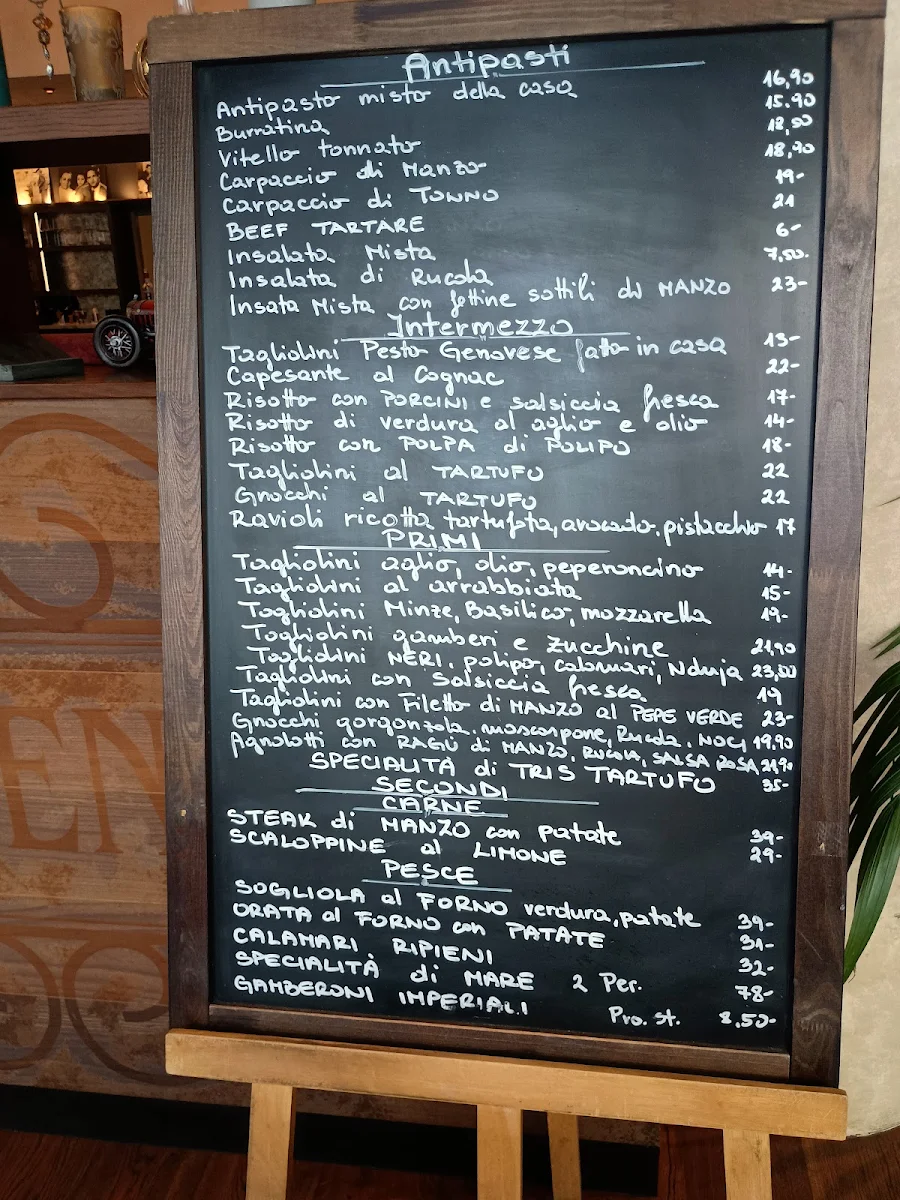 Antipasti
Antipasto misto della casa 16,90
Burratina 15.90
Vitello tonnato 18,50
Carpaccio di Manzo 18,90
Carpaccio di TONNO 19-
BEEF TARTARE 21
Insalata Mista 6-
Insalata di Rucola 7,50.
Insata Mista con fettine sottili di MANZO 23-
Intermezzo
Tagliolini Pesto Genovese fatto in casa 13-
Capesante al Cognac 22-
Risotto con PORCINI e salsiccia fresca 17-
Risotto di verdura al aglio e olio 14-
Risotto con POLPA di POLIPO 18-
Tagliolini al TARTUFO 22
Gnocchi al TARTUFO 22
Ravioli ricotta tartufata, avocado, pistacchio 17
PRIMI
Tagliolini aglio, olio, peperoncino 14-
Tagliolini al arrabbiata 15-
Tagliolini Minze, Basilico, mozzarella 19-
Tagliolini gamberi e zucchine 21,90
Tagliolini NERI, polipo, calamari, Nduja 23,50
Tagliolini con Salsiccia fresca 19
Tagliolini con Filetto di MANZO al PEPE VERDE 23-
Gnocchi gorgonzola, mascarpone, Rucola, NOCI 19,90
Agnolotti con RAGÙ di MANZO, RUCOLA, SALSA ROSA 21,90
SPECIALITÀ di TRIS TARTUFO 35-
SECONDI
CARNE
STEAK di MANZO con patate 39-
SCALOPPINE al LIMONE 29-
PESCE
SOGLIOLA al FORNO verdura, patate 39-
ORATA al FORNO con PATATE 31-
CALAMARI RIPIENI 32-
SPECIALITÀ di MARE 2 Per. 78-
GAMBERONI IMPERIALI Pro. St. 8,50-